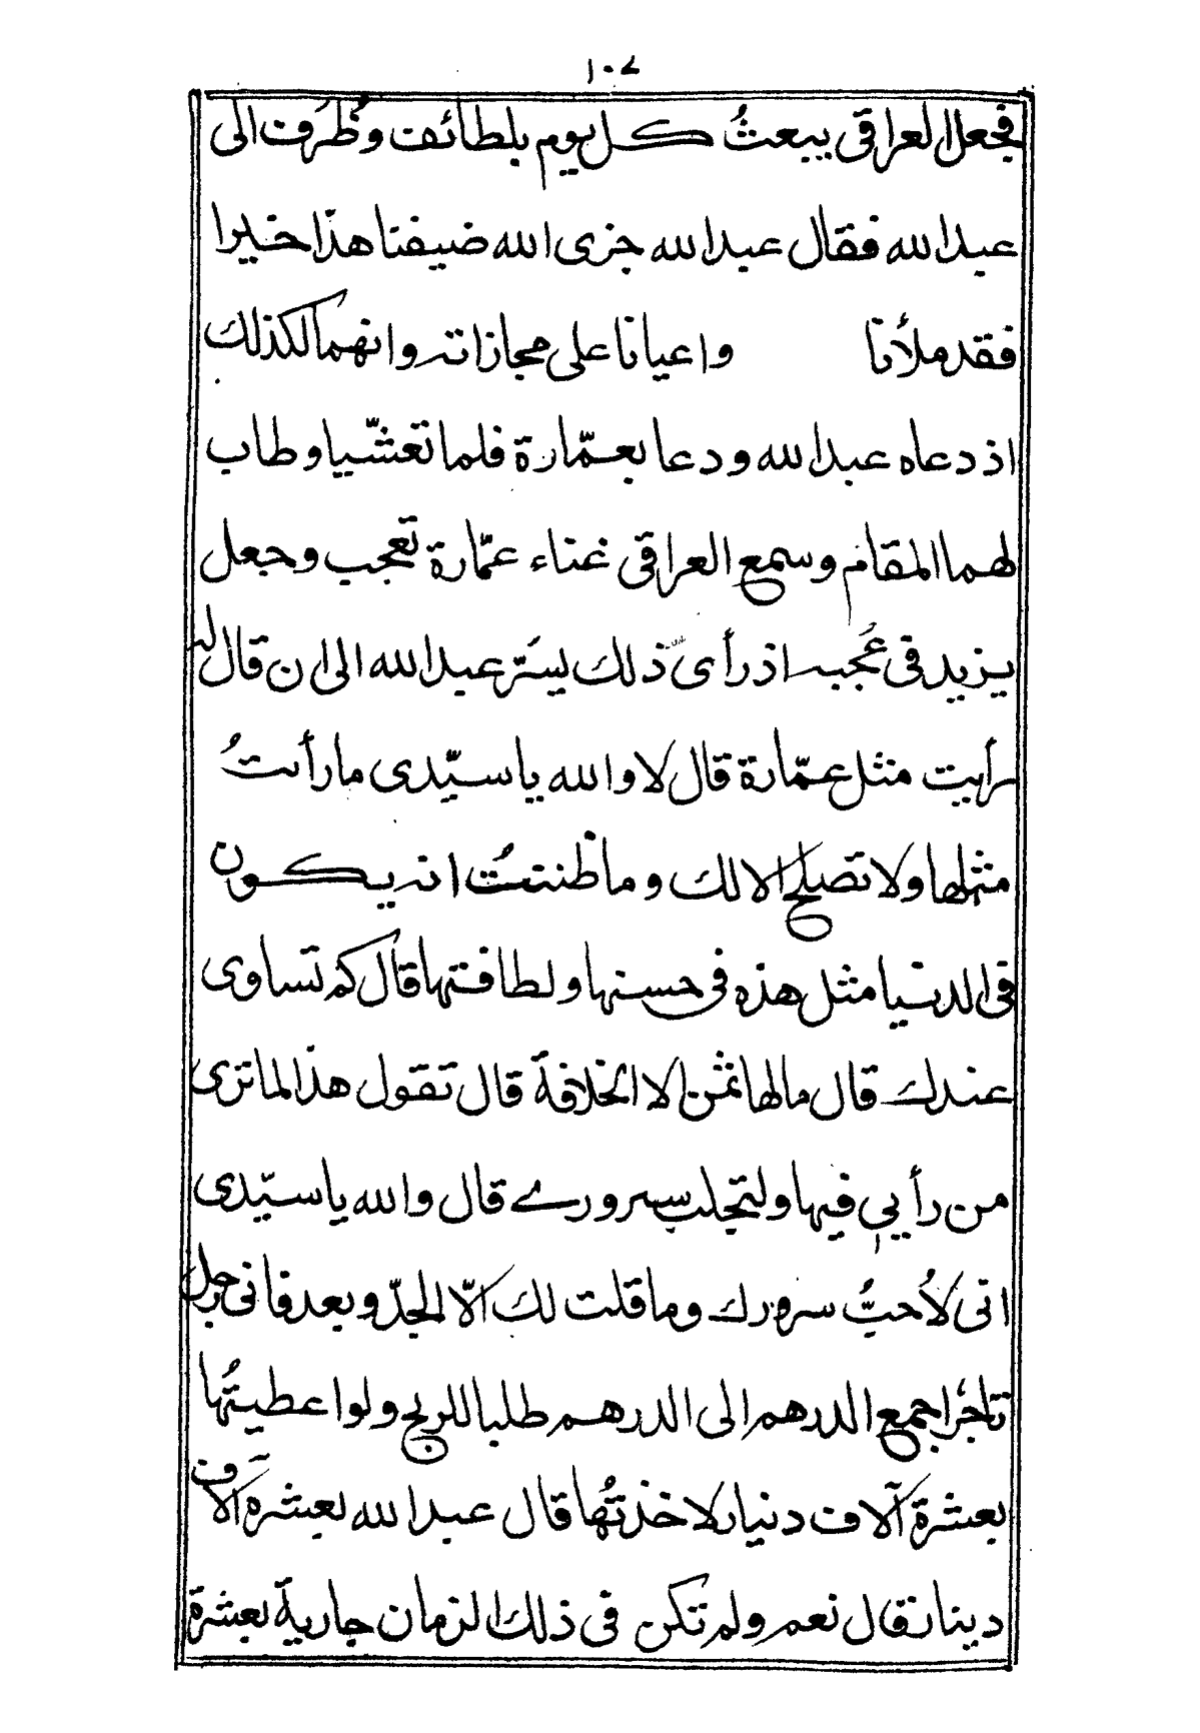 ١٠٧
فجعل العراقى يبعثُ كل يوم بلطائف وظُرَف الى
عبد الله فقال عبد الله جزى الله ضيفنا هذا خيرا
فقد ملأنا واعيانا على مجازاته وانهما لكذلك
اذ دعاه عبد الله ودعا بعمّارة فلما تعشّيا وطاب
لهما المقام وسمع العراقى غناء عمّارة تعجب وجعل
يزيد فى عُجبه اذ رأى ذلك يسَرّ عبد الله الى ان قال له
رأيت مثل عمّارة قال لا والله يا سيّدى ما رأىتُ
مثلها ولا تصلح الا لك وما ظننتُ انه يكون
فى الدنيا مثل هذه فى حسنها ولطافتها قال كم تساوى
عندك قال ما لها ثمن الا الخلافة قال تقول هذا لما ترى
من رأيي فيها ولتجلب سرورے قال والله يا سيّدى
انى لأُحبُّ سرورك وما قلت لك الّا الجدّ وبعد فانى رجل
تاجرٌ اجمع الدرهم الى الدرهم طلبا للربح ولو اعطيتُها
بعشرة آلاف دنيار لاخذتُها قال عبد الله بعشرة آلاف
دينار قال نعم ولم تكن فى ذلك الزمان جارية بعشرة